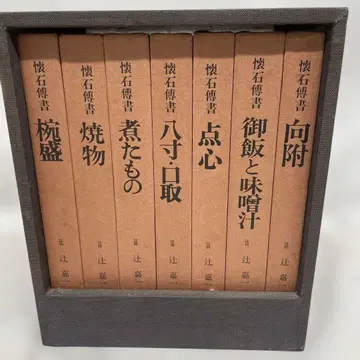 懐石傳書
向附
辻 嘉一
懐石傳書
御飯と味噌汁
辻 嘉一
懐石傳書
点心
辻 嘉一
懐石傳書
八寸・口取
辻 嘉一
懐石傳書
煮たもの
辻 嘉一
懐石傳書
焼物
辻 嘉一
懐石傳書
椀盛
辻 嘉一